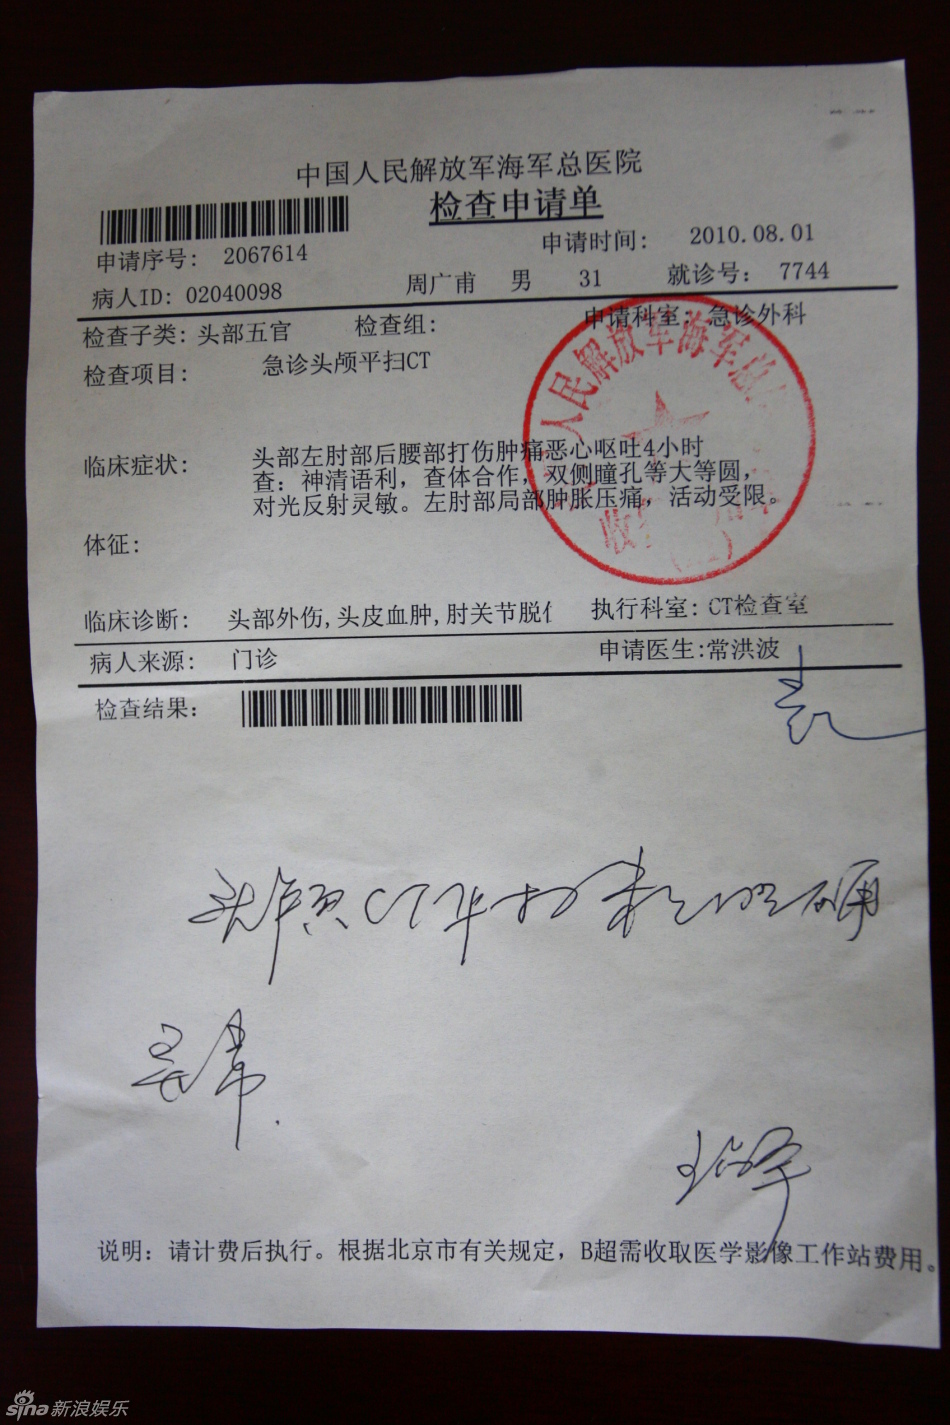 中国人民解放军海军总医院
检查申请单
申请序号: 2067614
申请时间: 2010.08.01
病人ID: 02040098 周广甫 男 31 就诊号: 7744
检查子类: 头部五官 检查组: 申请科室: 急诊外科
检查项目: 急诊头颅平扫CT
人民解放军海军总
收
临床症状: 头部左肘部后腰部打伤肿痛恶心呕吐4小时
查: 神清语利, 查体合作, 双侧瞳孔等大等圆,
对光反射灵敏。左肘部局部肿胀压痛, 活动受限。
体征:
临床诊断: 头部外伤,头皮血肿,肘关节脱 执行科室: CT检查室
病人来源: 门诊 申请医生:常洪波
检查结果:
头颅CT平扫未见明确
异常.
说明: 请计费后执行。根据北京市有关规定, B超需收取医学影像工作站费用。
sina新浪娱乐